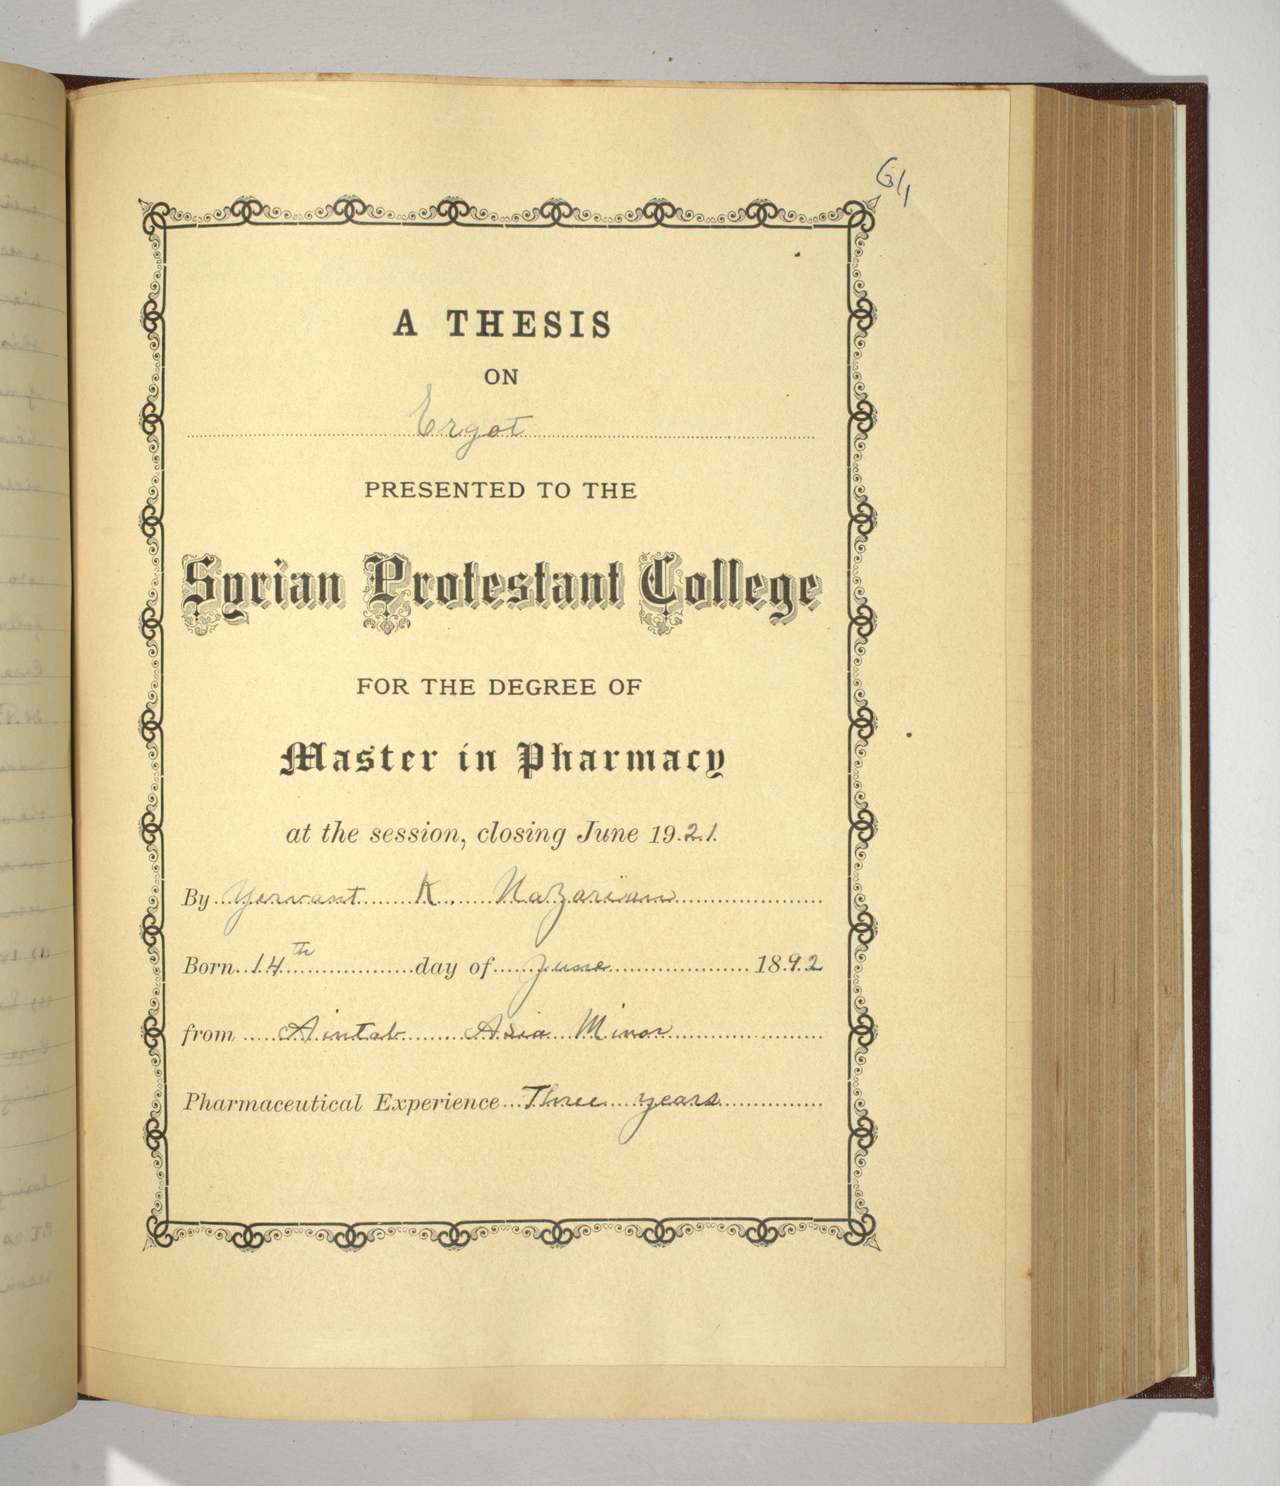 64
A THESIS
ON
Ergot
PRESENTED TO THE
Syrian Protestant College
FOR THE DEGREE OF
Master in Pharmacy
at the session, closing June 1921.
By Yervant K. Nazarian
Born 14th day of June 1892
from Aintab Asia Minor
Pharmaceutical Experience Three years